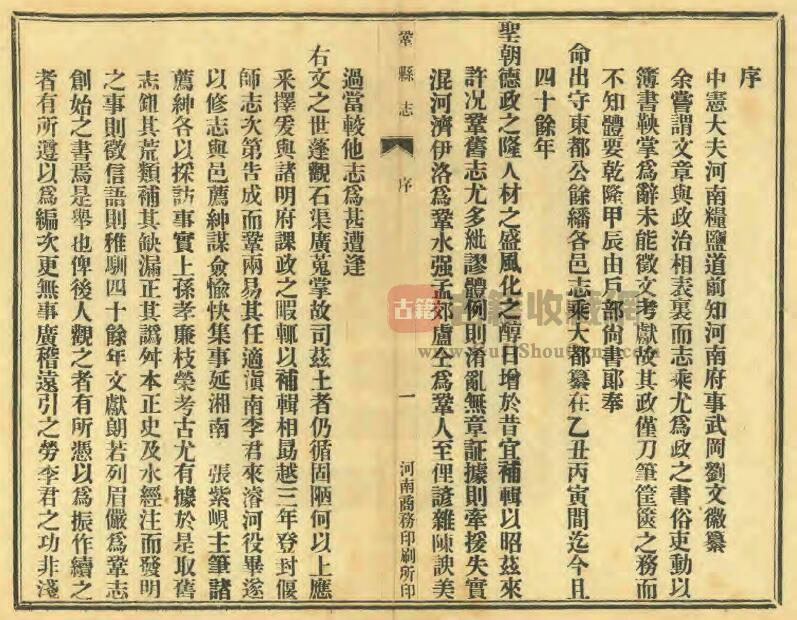 序
中憲大夫河南糧鹽道前知河南府事武岡劉文徽纂
余嘗謂文章與政治相表裏而志乘尤爲政之書俗吏動以
簿書鞅掌爲辭未能徵文考獻故其政僅刀筆筐篋之務而
不知體要乾隆甲辰由戶部尚書郎奉
命出守東都公餘繙各邑志乘大都纂在乙丑丙寅間迄今且
四十餘年
聖朝德政之隆人材之盛風化之醇日增於昔宜補輯以昭茲來
許况鞏舊志尤多紕謬體例則淆亂無章証據則牽援失實
混河濟伊洛爲鞏水强孟郊盧仝爲鞏人至俚諺雜陳諛美
鞏縣志
序
一
河南商務印刷所印
過當較他志爲甚遭逢
右文之世蓬觀石渠廣蒐掌故司茲土者仍循固陋何以上應
采擇爰與諸明府課政之暇輒以補輯相勗越三年登封偃
師志次第告成而鞏兩易其任適滇南李君來濬河役畢遂
以修志與邑薦紳謀僉愉快集事延湘南 張紫峴主筆諸
薦紳各以採訪事實上孫孝廉枝榮考古尤有據於是取舊
志鈕其荒類補其缺漏正其譌舛本正史及水經注而發明
之事則徵信語則雅馴四十餘年文獻朗若列眉儼爲鞏志
創始之書焉是舉也俾後人觀之者有所憑以爲振作續之
者有所遵以爲編次更無事廣稽遠引之勞李君之功非淺
古籍
收藏